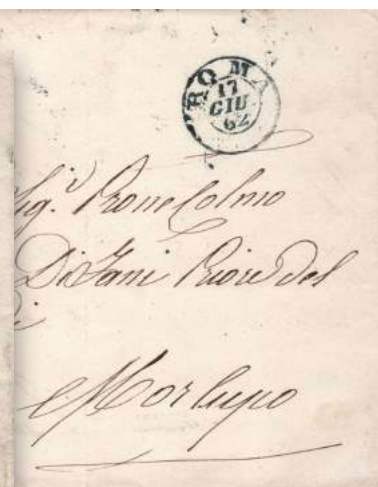 ROMA
17
GIU
62
Sig.r Prone Colmo
Priore del
Morlupo